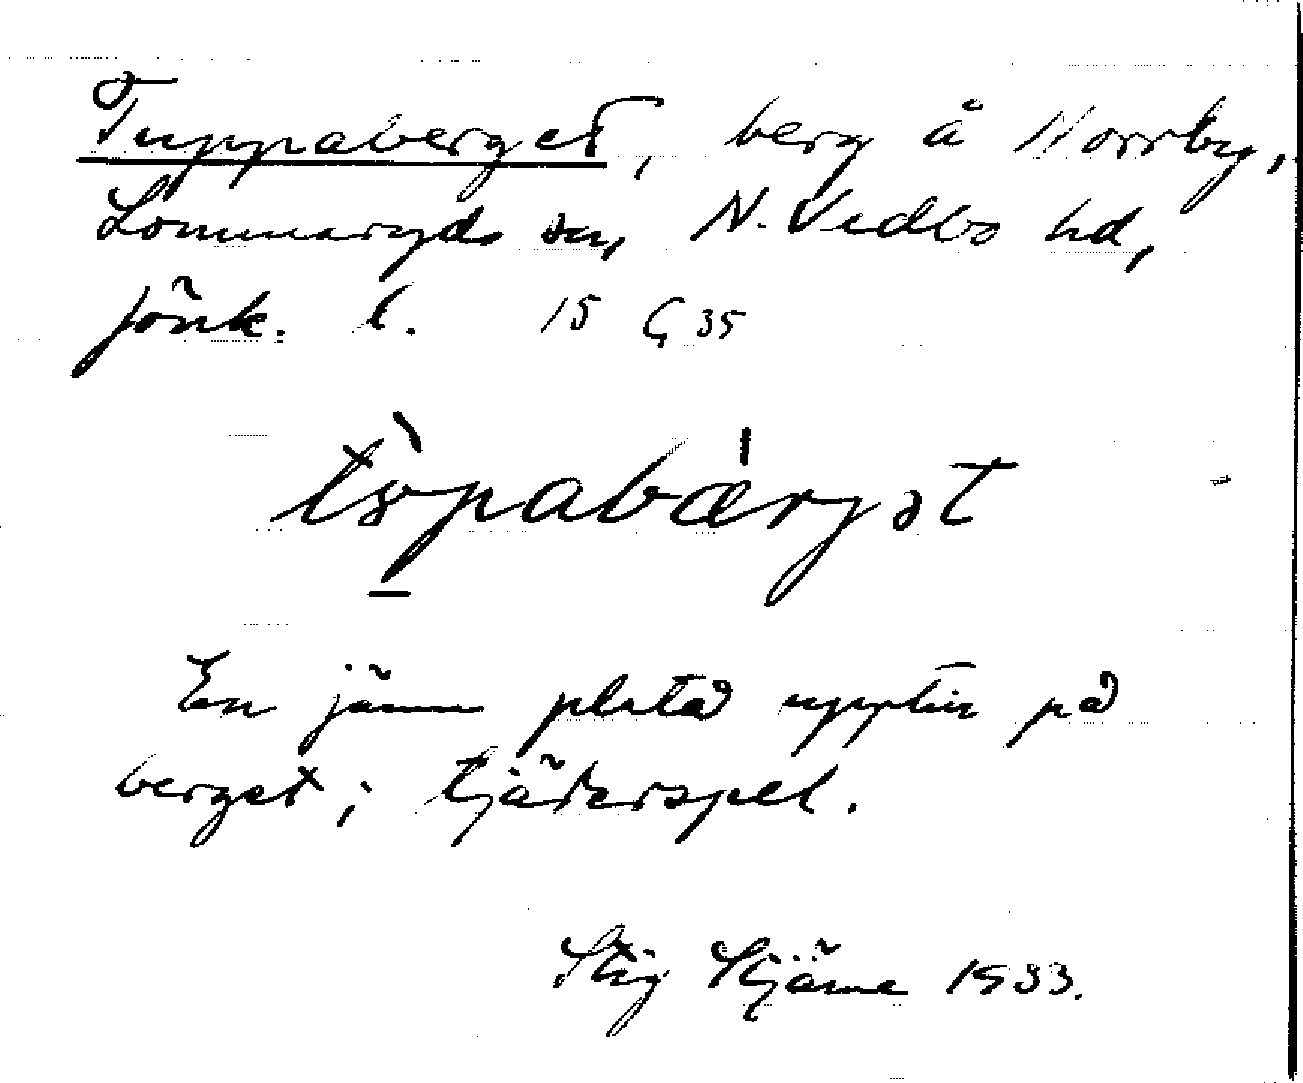 Tuppaberget, berg å Norrby,
Lommaryds sn, N. Vedbo hd,
Jönk. l. 15 Ç 35
tɤ̀pabær̍gət
En jämn platå upptill på
berget; tjäderspel.
Stig Stjärne 1933.